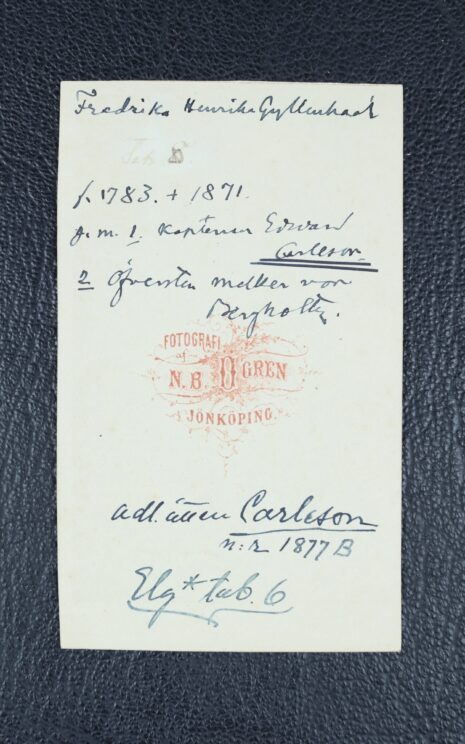 Fredrika Henrika Gyllenhaal
Tab 5
f. 1783. + 1871.
g. m. 1. Kaptenen Edvard
Carleson
2 Öfversten Melker von
Bergholtz.
FOTOGRAFI
af
N. B. ÖGREN
JÖNKÖPING.
adl. ätten Carleson
n:r 1877 B
Elg* tab. 6